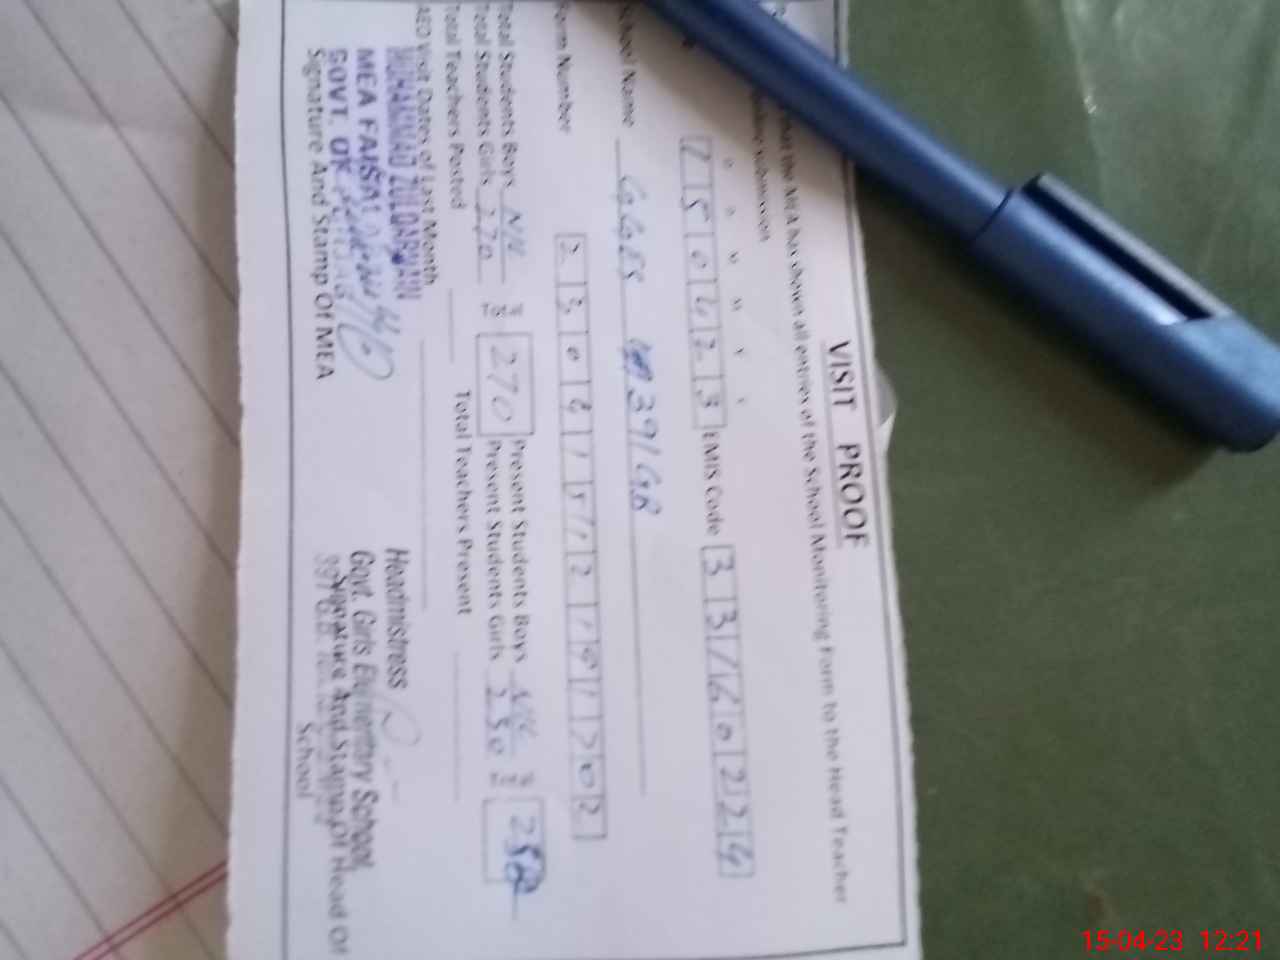 VISIT PROOF
that the MEA has shown all entries of the School Monitoring Form to the Head Teacher
online submission
7 5 0 4 2 3 EMIS Code 3 3 1 6 0 2 2 4
School Name GGES 391 GB
Form Number 2 3 0 4 1 5 1 2 1 9 1 7 0 2
Total Students Boys Nil Present Students Boys Nil
Total Students Girls 270 270 Present Students Girls 250 25
Total Teachers Posted Total Teachers Present
AEO Visit Dates of Last Month
MUHAMMAD ZULQARNAIN
MEA FAISAL
GOVT. OF
Signature And Stamp Of MEA
Headmistress
Govt. Girls Elementary School
391 G.B.
Signature And Stamp Of Head Of
School
15-04-23 12:21